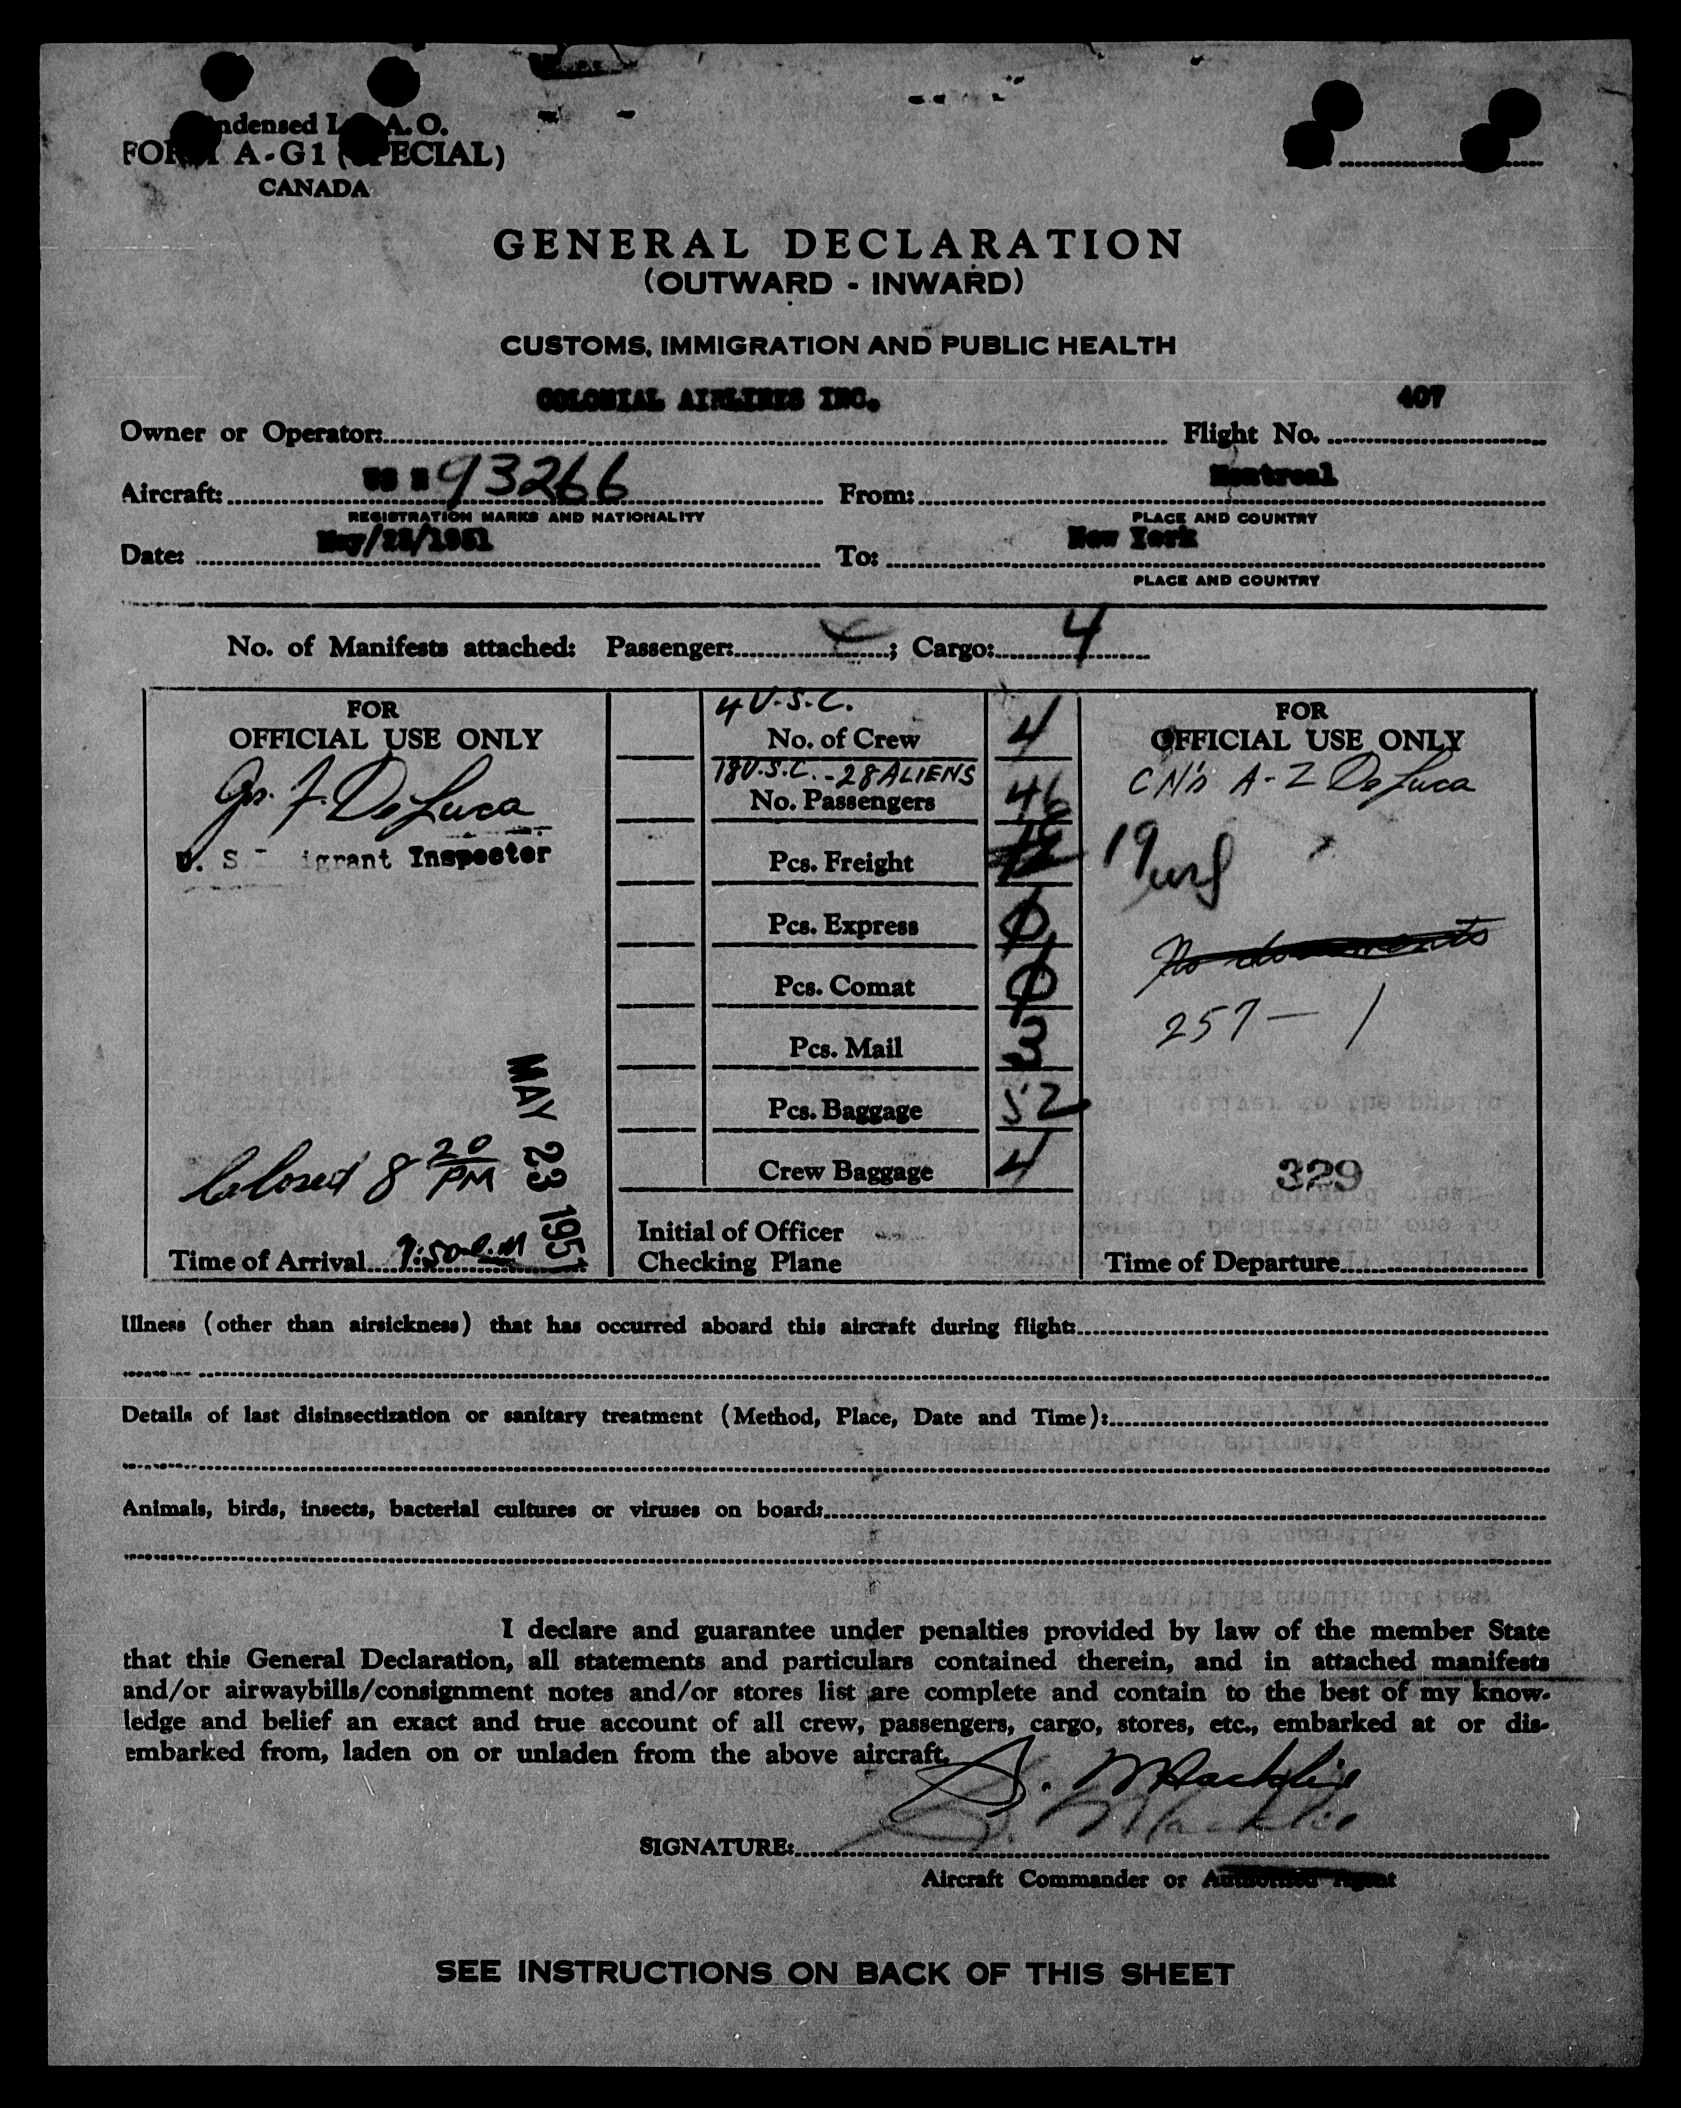 Condensed I.C.A.O.
FORM A-G1 (SPECIAL)
CANADA
GENERAL DECLARATION
(OUTWARD - INWARD)
CUSTOMS, IMMIGRATION AND PUBLIC HEALTH
COLONIAL AIRLINES INC. 407
Owner or Operator: Flight No.
Aircraft: US N 93266 From: Montreal
REGISTRATION MARKS AND NATIONALITY PLACE AND COUNTRY
Date: May/23/1951 To: New York
PLACE AND COUNTRY
No. of Manifests attached: Passenger: ; Cargo: 4
FOR
OFFICIAL USE ONLY
De Luca
U. S. Inspector
MAY 23 1951
Closed 8 20 PM
Time of Arrival 7:50 P.M
4 U.S.C.
No. of Crew 4
18 U.S.C. - 28 ALIENS
No. Passengers 46
Pcs. Freight
Pcs. Express 0
Pcs. Comat 0
Pcs. Mail 3
Pcs. Baggage 52
Crew Baggage 4
Initial of Officer
Checking Plane
FOR
OFFICIAL USE ONLY
CN's A-Z De Luca
19
No documents
257 - 1
329
Time of Departure
Illness (other than airsickness) that has occurred aboard this aircraft during flight:
Details of last disinsectization or sanitary treatment (Method, Place, Date and Time):
Animals, birds, insects, bacterial cultures or viruses on board:
I declare and guarantee under penalties provided by law of the member State
that this General Declaration, all statements and particulars contained therein, and in attached manifests
and/or airwaybills/consignment notes and/or stores list are complete and contain to the best of my know-
ledge and belief an exact and true account of all crew, passengers, cargo, stores, etc., embarked at or dis-
embarked from, laden on or unladen from the above aircraft.
S. Macklin
S. Macklin
SIGNATURE:
Aircraft Commander or Authorized Agent
SEE INSTRUCTIONS ON BACK OF THIS SHEET